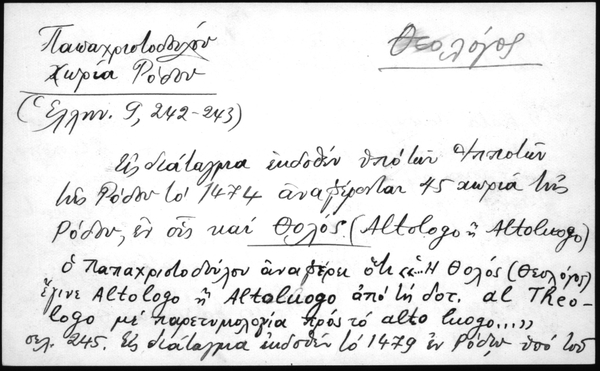 Παπαχριστοδούλου
Χωρία Ρόδου
Θεολόγος
(Ελλην. 9, 242-243)
Εἰς διάταγμα ἐκδοθέν ὑπό τῶν Ἱπποτῶν
τῆς Ρόδου τό 1474 ἀναφέρονται 45 χωρία τῆς
Ρόδου, ἐν οἷς καί Θολός (Altologo ἤ Altoluogo)
ὁ Παπαχριστοδούλου ἀναφέρει ὅτι «...Ἡ Θολός (Θεολόγος)
ἔγινε Altologo ἤ Altoluogo ἀπό τή δοτ. al Theo-
logo μέ παρετυμολογία πρός τό alto luogo...»
σελ. 245. Εἰς διάταγμα ἐκδοθέν τό 1479 ἐν Ρόδῳ, ὑπό τοῦ